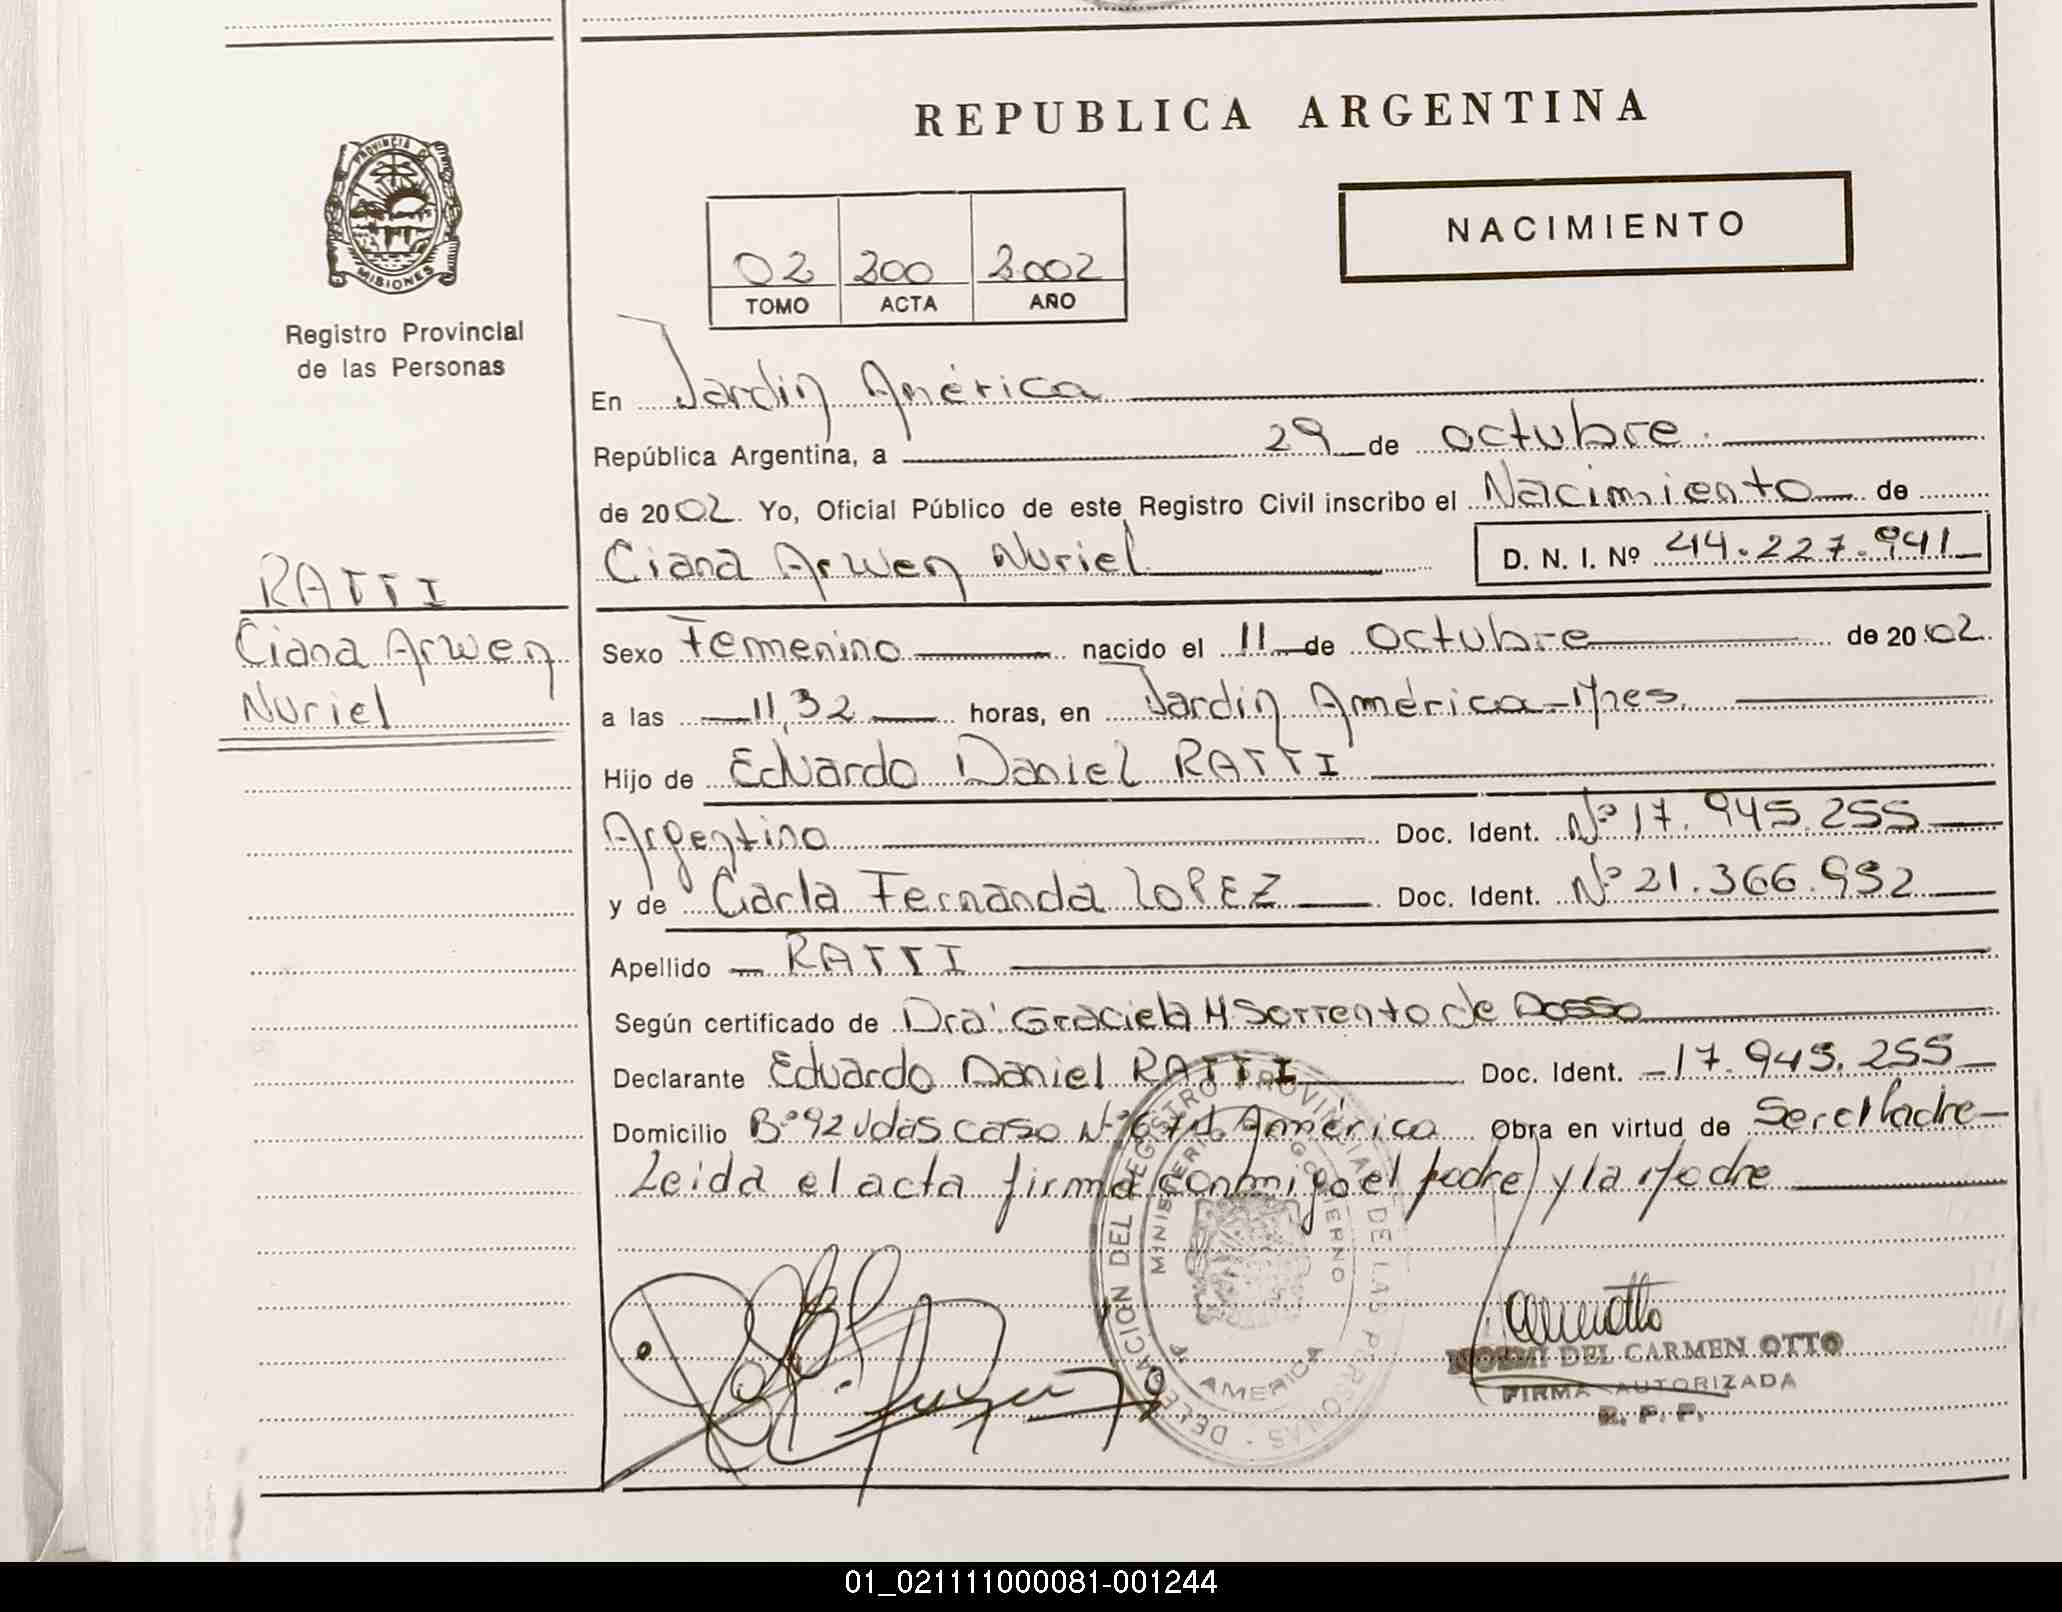 REPUBLICA ARGENTINA
NACIMIENTO
PROVINCIA DE
MISIONES
Registro Provincial
de las Personas
02 200 2002
TOMO ACTA AÑO
En Jardín América
República Argentina, a 29 de octubre
de 2002 Yo, Oficial Público de este Registro Civil inscribo el Nacimiento de
Ciana Arwen Nuriel D. N. I. Nº 44.227.941
RATTI
Ciana Arwen
Nuriel
Sexo Femenino nacido el 11 de Octubre de 2002
a las 11,32 horas, en Jardín América-Mnes.
Hijo de Eduardo Daniel RATTI
Argentino Doc. Ident. Nº 17.945.255
y de Carla Fernanda LOPEZ Doc. Ident. Nº 21.366.932
Apellido RATTI
Según certificado de Dra. Graciela M Sorrento de Dosso
Declarante Eduardo Daniel RATTI Doc. Ident. 17.945.255
Domicilio Bº 92 Vdas casa Nº América Obra en virtud de Ser el Padre
Leida el acta firma conmigo el padre y la Madre
DELEGACION DEL REGISTRO PROVINCIAL DE LAS PERSONAS
MINISTERIO GOBIERNO
AMERICA
NOEMI DEL CARMEN OTTO
FIRMA AUTORIZADA
R. P. P.
01_021111000081-001244